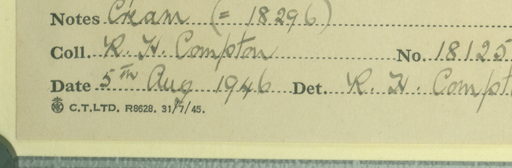 Notes Cream (= 18296)
Coll. R. H. Compton No. 18125
Date 5th Aug 1946 Det. R. H. Compt
C.T.LTD. R8628. 31/7/45.